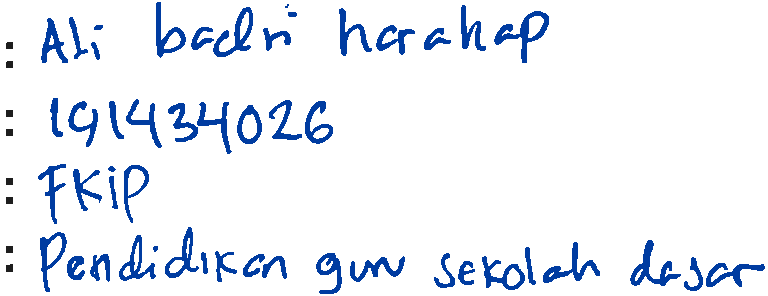 : Ali badri harahap
: 191434026
: FKiP
: Pendidikan guru sekolah dasar